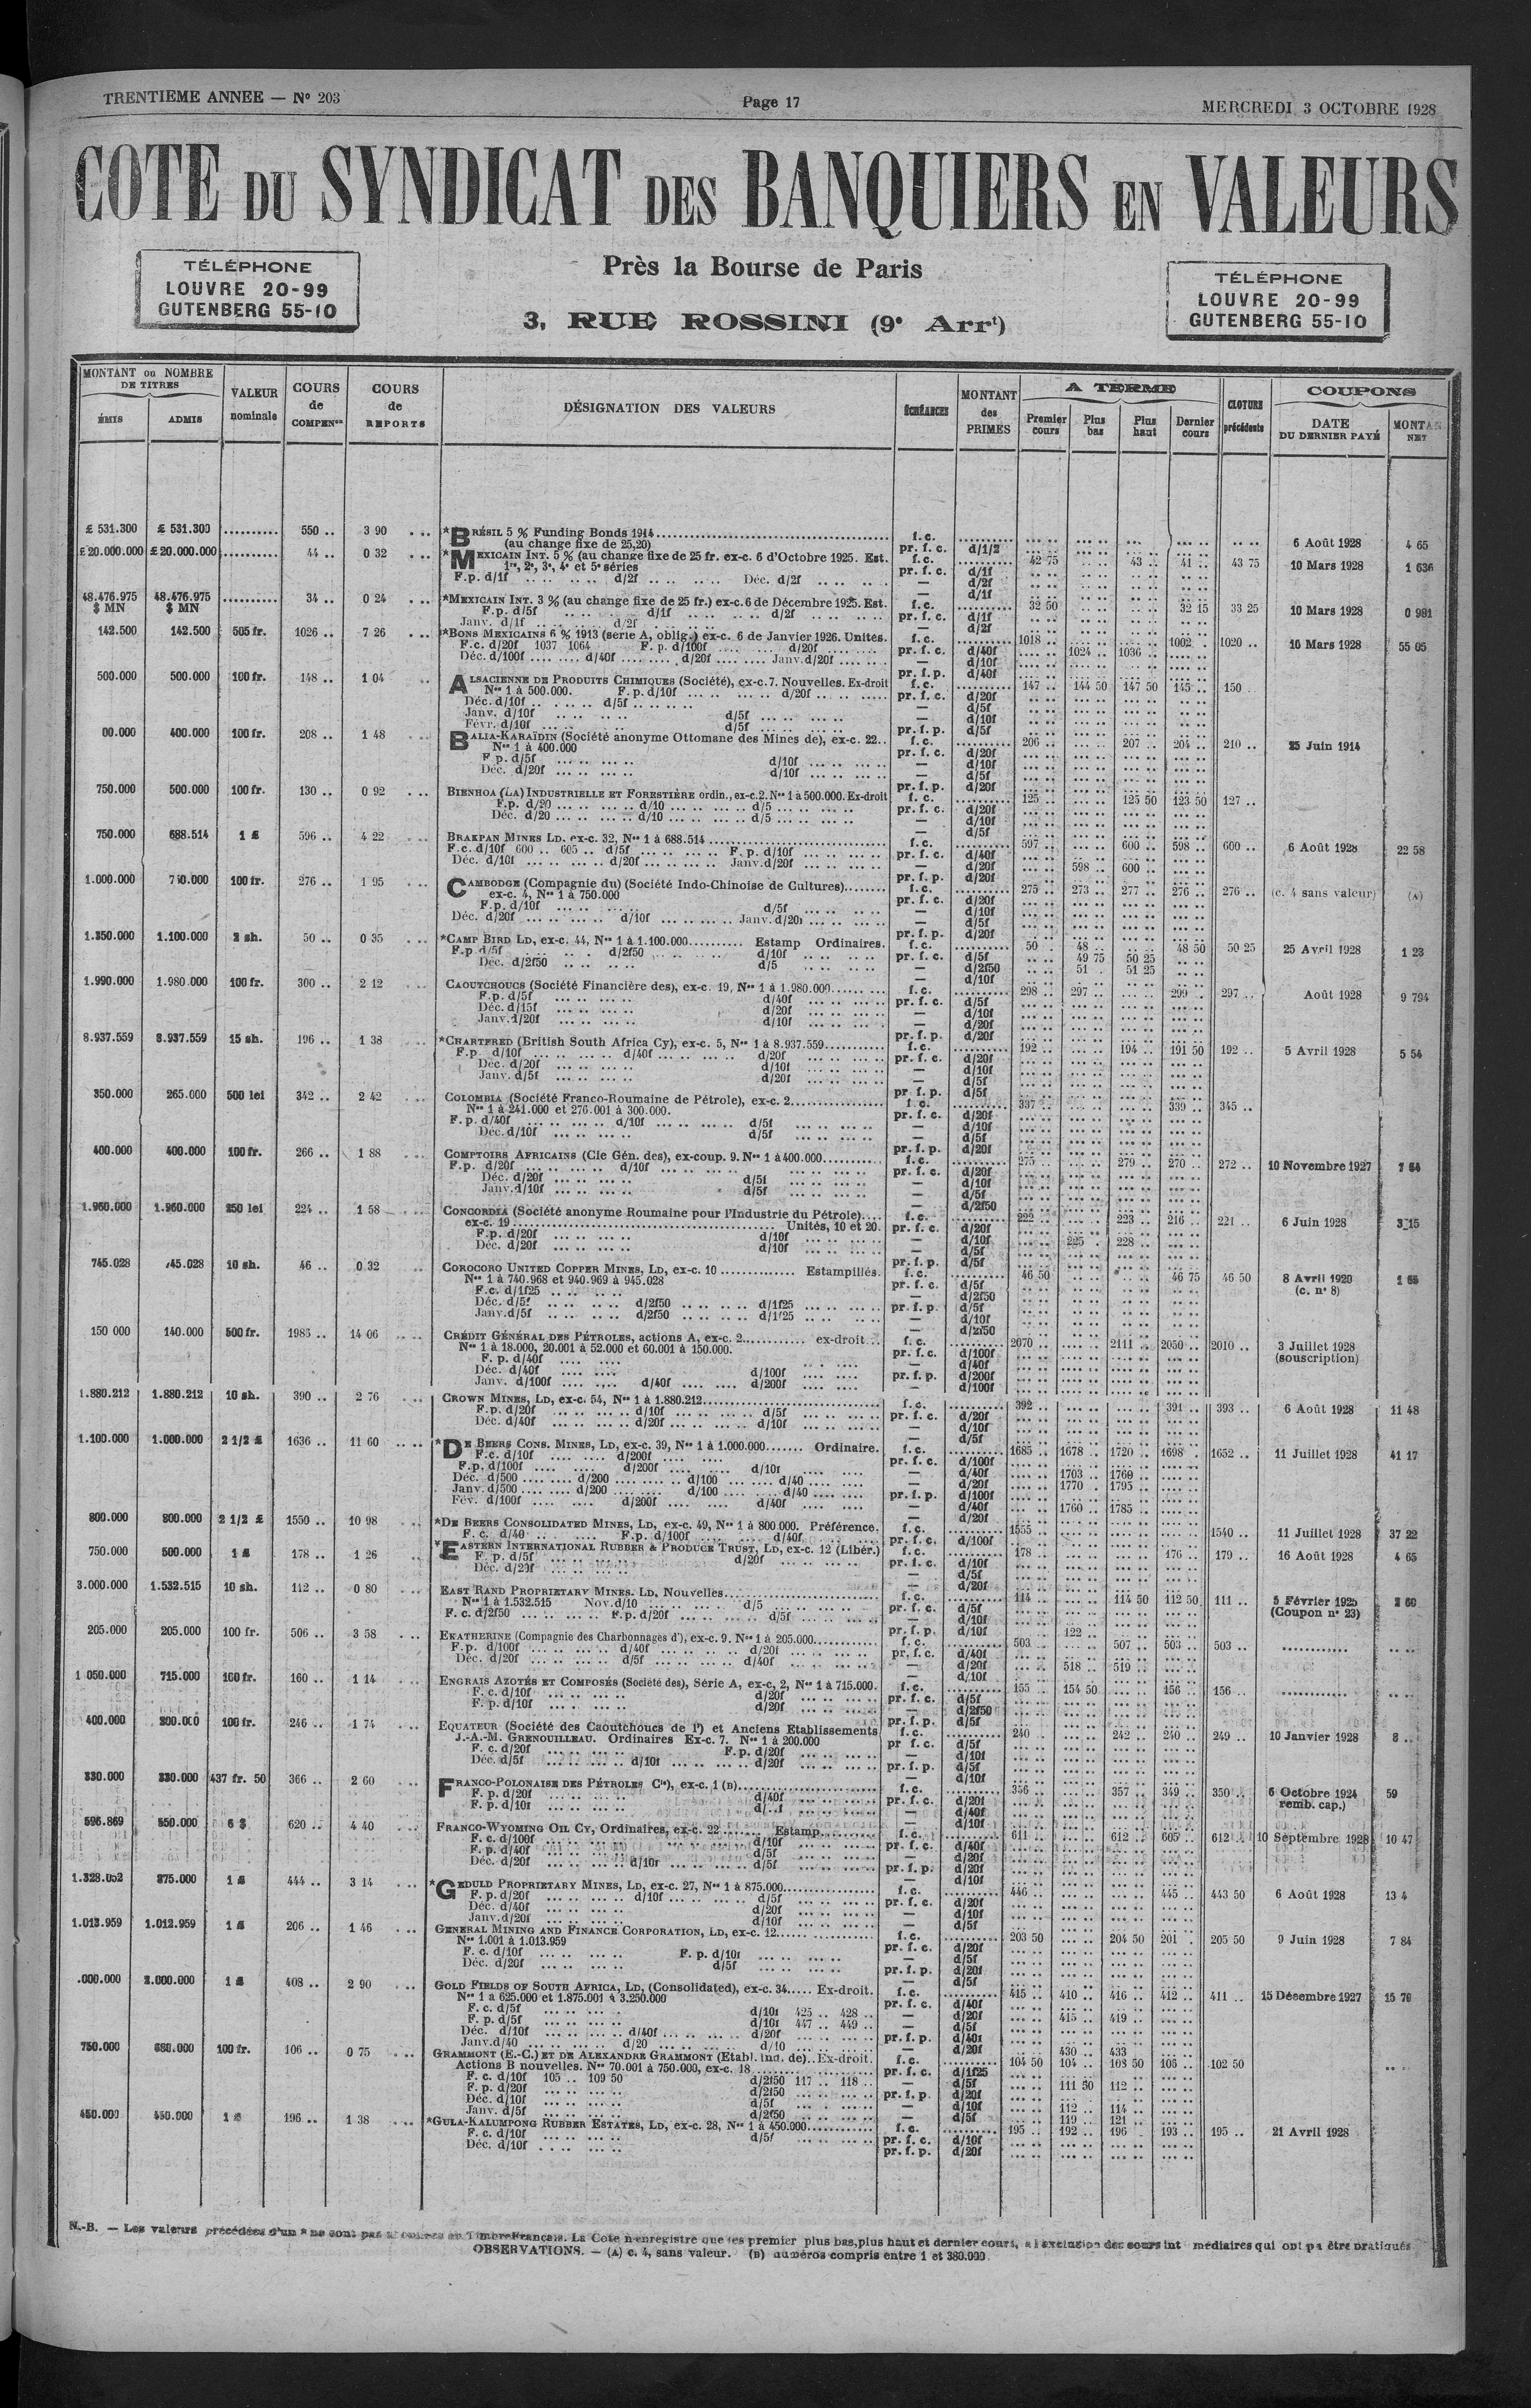 TRENTIEME ANNEE — N° 203
Page 17
MERCREDI 3 OCTOBRE 1928
COTE DU SYNDICAT DES BANQUIERS EN VALEURS
TÉLÉPHONE
LOUVRE 20-99
GUTENBERG 55-10
Près la Bourse de Paris
3, RUE ROSSINI (9e Arrt)
TÉLÉPHONE
LOUVRE 20-99
GUTENBERG 55-10
MONTANT ou NOMBRE DE TITRES
ÉMIS ADMIS
VALEUR nominale
COURS de COMPENon
COURS de REPORTS
DÉSIGNATION DES VALEURS
ÉCHÉANCES
MONTANT des PRIMES
A TERME
Premier cours Plus bas Plus haut Dernier cours
CLOTURE précédente
COUPONS
DATE DU DERNIER PAYÉ
NET
£ 531.300 £ 531.300 .......... 550 .. 3 90 *BRÉSIL 5 % Funding Bonds 1914 f.c. 6 Août 1928 4 65
(au change fixe de 25,20) pr. f. c. d/1/2
£ 20.000.000 £ 20.000.000 .......... 44 .. 0 32 *MEXICAIN INT. 5 % (au change fixe de 25 fr. ex-c. 6 d'Octobre 1925. Est. f.c. 42 75 43 .. 41 .. 43 75 10 Mars 1928 1 636
1re, 2e, 3e, 4e et 5e séries pr. f. c. d/1f
F.p. d/1f d/2f Déc. d/2f — d/2f
48.476.975 $ MN 48.476.975 $ MN .......... 34 .. 0 24 *MEXICAIN INT. 3 % (au change fixe de 25 fr.) ex-c. 6 de Décembre 1925. Est. f.c. 32 50 32 15 33 25 10 Mars 1928 0 981
F.p. d/5f d/1f d/2f pr. f. c. d/1f
Janv. d/1f d/2f — d/2f
142.500 142.500 505 fr. 1026 .. 7 26 *BONS MEXICAINS 6 % 1913 (serie A, oblig.) ex-c. 6 de Janvier 1926. Unités. f.c. 1018 .. 1002 . 1020 .. 10 Mars 1928 55 05
F.c. d/20f 1037 1064 F. p. d/100f d/20f pr. f. c. d/40f 1024 .. 1036 ..
Déc. d/100f d/40f d/20f Janv. d/20f — d/10f
500.000 500.000 100 fr. 148 .. 1 04 ALSACIENNE DE PRODUITS CHIMIQUES (Société), ex-c. 7. Nouvelles. Ex-droit f.c. 147 .. 144 50 147 50 145 .. 150
Nos 1 à 500.000. F.p. d/10f d/20f pr. f. c. d/20f
Déc. d/10f d/5f — d/5f
Janv. d/10f d/5f — d/10f
Févr. d/10f d/5f pr. f. p. d/5f
00.000 400.000 100 fr. 208 .. 1 48 BALIA-KARAÏDIN (Société anonyme Ottomane des Mines de), ex-c. 22.. f.c. 206 .. 207 .. 204 .. 210 .. 25 Juin 1914
Nos 1 à 400.000 pr. f. c. d/20f
F p. d/5f d/10f — d/10f
Déc. d/20f d/10f — d/5f
750.000 500.000 100 fr. 130 .. 0 92 BIENHOA (LA) INDUSTRIELLE ET FORESTIÈRE ordin., ex-c. 2. Nos 1 à 500.000. Ex-droit f. c. 125 .. 125 50 123 50 127 ..
F.p. d/20 d/10 d/5 pr. f. c. d/20f
Déc. d/20 d/10 d/5 — d/10f
750.000 688.514 1 £ 596 .. 4 22 BRAKPAN MINES LD. ex-c. 32, Nos 1 à 688.514 f.c. 597 .. 600 .. 598 .. 600 .. 6 Août 1928 22 58
F.c. d/10f 600 .. 605 .. d/5f F. p. d/10f pr. f. c. d/40f
Déc. d/10f d/20f Janv. d/20f — d/20f 598 .. 600 ..
1.000.000 100 fr. 276 .. 1 95 CAMBODGE (Compagnie du) (Société Indo-Chinoise de Cultures) f.c. 275 .. 273 .. 277 .. 276 .. 276 .. (c. 4 sans valeur) (A)
ex-c. 4, Nos 1 à 750.000 pr. f. c. d/20f
F.p. d/10f d/5f — d/10f
Déc. d/20f d/10f Janv. d/20f — d/5f
1.350.000 1.100.000 2 sh. 50 .. 0 35 *CAMP BIRD LD, ex-c. 44, Nos 1 à 1.100.000 Estamp Ordinaires. f.c. 50 . 48 .. 48 50 50 25 25 Avril 1928 1 23
F.p d/5f d/2f50 d/10f pr. f. c. d/5f 49 75 50 25
Déc. d/2f50 d/5 — d/2f50 51 . 51 25
1.990.000 1.980 000 100 fr. 300 .. 2 12 CAOUTCHOUCS (Société Financière des), ex-c. 19, Nos 1 à 1.980.000 f.c. 298 .. 297 .. 299 . 297 .. Août 1928 9 794
F.p. d/5f d/40f pr. f. c. d/5f
Déc. d/15f d/20f — d/10f
Janv. d/20f d/10f — d/20f
8.937.559 8.937.559 15 sh. 196 .. 1 38 *CHARTERED (British South Africa Cy), ex-c. 5, Nos 1 à 8.937.559 f.c. 192 .. 194 .. 191 50 192 .. 5 Avril 1928 5 54
F.p. d/10f d/40f d/20f pr. f. c. d/20f
Déc. d/20f d/10f — d/10f
Janv. d/5f d/20f — d/5f
350.000 265.000 500 lei 342 .. 2 42 COLOMBIA (Société Franco-Roumaine de Pétrole), ex-c. 2 f.c. 337 .. 339 .. 345 ..
Nos 1 à 241.000 et 276.001 à 300.000. pr. f. c. d/20f
F.p. d/40f d/10f d/5f — d/10f
Déc. d/10f d/5f — d/5f
400.000 400.000 100 fr. 266 .. 1 88 COMPTOIRS AFRICAINS (Cie Gén. des), ex-coup. 9. Nos 1 à 400.000 f.c. 275 .. 279 .. 270 .. 272 .. 10 Novembre 1927
F.p. d/20f d/10f pr. f. c. d/20f
Déc. d/20f d/5f — d/10f
Janv. d/10f d/5f — d/5f
1.960.000 1.960.000 250 lei 224 .. 1 58 CONCORDIA (Société anonyme Roumaine pour l'Industrie du Pétrole) f.c. 222 .. 223 .. 216 .. 221 .. 6 Juin 1928 3 15
ex-c. 19 Unités, 10 et 20. pr. f. c. d/20f
F.p. d/20f d/10f — d/10f 225 . 228 ..
Déc. d/20f d/10f — d/5f
745.028 745.028 10 sh. 46 .. 0 32 COROCORO UNITED COPPER MINES, LD, ex-c. 10 Estampillés. f.c. 46 50 46 75 46 50 8 Avril 1920 (c. n° 8)
Nos 1 à 740.968 et 940.969 à 945.028 pr. f. c. d/5f
F.c. d/1f25 — d/2f50
Déc. d/5f d/2f50 d/1f25 pr. f. p. d/5f
Janv. d/5f d/2f50 d/1f25 — d/10f
150 000 140.000 500 fr. 1985 .. 14 06 CRÉDIT GÉNÉRAL DES PÉTROLES, actions A, ex-c. 2 ex-droit f.c. 2070 .. 2111 .. 2050 .. 2010 .. 3 Juillet 1928 (souscription)
Nos 1 à 18.000, 20.001 à 52.000 et 60.001 à 150.000. pr. f. c. d/100f
F. p. d/40f — d/40f
Déc. d/40f d/100f pr. f. p. d/200f
Janv. d/100f d/40f d/200f — d/100f
1.880.212 1.880.212 10 sh. 390 .. 2 76 CROWN MINES, LD, ex-c. 54, Nos 1 à 1.880.212 f.c. 392 .. 391 .. 393 .. 6 Août 1928 11 48
F.p. d/20f d/10f d/5f pr. f. c. d/20f
Déc. d/40f d/20f d/10f — d/10f
1.100.000 1.000.000 2 1/2 £ 1636 .. 11 60 *DE BEERS CONS. MINES, LD, ex-c. 39, Nos 1 à 1.000.000 Ordinaire. f.c. 1685 .. 1678 .. 1720 .. 1698 . 1652 .. 11 Juillet 1928 41 17
F.c. d/10f d/200f pr. f. c. d/100f
F.p. d/100f d/200f d/10f — d/40f 1703 .. 1760 ..
Déc. d/500 d/200 d/100 d/40 — d/20f 1770 .. 1795 ..
Janv. d/500 d/200 d/100 d/40 pr. f. p. d/100f
Fév. d/100f d/200f d/40f — d/40f 1760 .. 1785 ..
800.000 800.000 2 1/2 £ 1550 .. 10 98 *DE BEERS CONSOLIDATED MINES, LD, ex-c. 49, Nos 1 à 800.000. Préférence. f.c. 1555 .. 1540 .. 11 Juillet 1928 37 22
F. c. d/40 F.p. d/100f d/40f pr. f. c. d/100f
750.000 500.000 1 £ 178 .. 1 26 *EASTERN INTERNATIONAL RUBBER & PRODUCE TRUST, LD, ex-c. 12 (Libér.) f.c. 178 .. 176 .. 179 .. 16 Août 1928 4 65
F. p. d/5f d/20f pr. f. c. d/10f
Déc. d/20f — d/5f
3.000.000 1.532.515 10 sh. 112 .. 0 80 EAST RAND PROPRIETARY MINES. LD, Nouvelles f.c. 114 .. 114 50 112 50 111 .. 5 Février 1925 (Coupon n° 23)
Nos 1 à 1.532.515 Nov. d/10 d/5 pr. f. c. d/5f
F. c. d/2f50 F.p. d/20f d/5f — d/10f
205.000 205.000 100 fr. 506 .. 3 58 EKATHERINE (Compagnie des Charbonnages d'), ex-c. 9. Nos 1 à 205.000 f.c. 503 507 .. 503 .. 503 ..
F.p. d/100f d/40f d/20f pr. f. c. d/40f
Déc. d/20f d/5f d/40f — d/20f 518 .. 519 ..
1 050.000 715.000 100 fr. 160 .. 1 14 ENGRAIS AZOTÉS ET COMPOSÉS (Société des), Série A, ex-c, 2, Nos 1 à 715.000. f.c. 155 .. 154 50 156 .. 156 ..
F. c. d/10f d/20f pr. f. c. d/5f
F. p. d/10f d/20f — d/2f50
400.000 200.000 100 fr. 246 .. 1 74 EQUATEUR (Société des Caoutchoucs de l') et Anciens Etablissements f.c. 240 .. 242 .. 240 .. 249 .. 10 Janvier 1928 8 ..
J.-A.-M. GRENOUILLEAU. Ordinaires Ex-c. 7. Nos 1 à 200.000 pr f. c. d/5f
F. c. d/20f F. p. d/20f — d/10f
Déc. d/5f d/10f d/20f pr. f. p. d/5f
330.000 330.000 437 fr. 50 366 .. 2 60 FRANCO-POLONAISE DES PÉTROLES Cie), ex-c. 1 (B) f.c. 356 .. 357 .. 349 .. 350 .. 6 Octobre 1924 remb. cap.) 59
F. p. d/20f d/40f pr. f. c. d/20f
F. p. d/10f — d/40f
596.869 550.000 6 $ 620 .. 4 40 FRANCO-WYOMING OIL CY, Ordinaires, ex-c. 22 Estamp f.c. 611 .. 612 .. 605 .. 612 .. 10 Septembre 1928 10 47
F. c. d/100f d/10f pr. f. c. d/40f
F. p. d/40f d/5f — d/20f
Déc. d/20f d/10f d/5f pr. f. p. d/20f
875.000 1 £ 444 .. 3 14 *GEDULD PROPRIETARY MINES, LD, ex-c. 27, Nos 1 à 875.000 f.c. 446 .. 445 .. 443 50 6 Août 1928 13 4
F. p. d/20f d/10f d/5f pr. f. c. d/20f
Déc. d/40f d/20f — d/10f
Janv. d/20f d/10f — d/5f
1.013.959 1.012.959 1 £ 206 .. 1 46 GENERAL MINING AND FINANCE CORPORATION, LD, ex-c. 12 f.c. 203 50 204 50 201 . 205 50 9 Juin 1928 7 84
Nos 1.001 à 1.013.959 pr. f. c. d/20f
F. c. d/10f F. p. d/10f — d/5f
Déc. d/20f d/5f pr. f. p. d/20f
.000.000 2.000.000 1 £ 408 .. 2 90 GOLD FIELDS OF SOUTH AFRICA, LD, (Consolidated), ex-c. 34 Ex-droit. f.c. 415 .. 410 .. 416 .. 412 .. 411 .. 15 Décembre 1927 15 70
Nos 1 à 625.000 et 1.875.001 à 3.250.000 pr. f. c. d/40f
F. c. d/5f d/10f 425 .. 428 .. — d/20f 415 .. 419 ..
F. p. d/5f d/10f 447 .. 449 .. — d/5f
Déc. d/10f d/40f d/20f pr. f. p. d/40f
Janv. d/40 d/20 d/10 — d/20f 430 .. 433 ..
750.000 680.000 100 fr. 106 .. 0 75 GRAMMONT (E.-C.) ET DE ALEXANDRE GRAMMONT (Etabl. ind. de).. Ex-droit. f.c. 104 50 104 .. 108 50 105 .. 102 50
Actions B nouvelles. Nos 70.001 à 750.000, ex-c. 18 pr. f. c. d/1f25
F. c. d/10f 105 .. 109 50 d/2f50 117 .. 118 .. — d/5f 111 50 112 ..
F. p. d/20f d/2f50 pr. f. p. d/20f
Déc. d/10f d/5f — d/10f 112 .. 114 ..
Janv. d/5f d/2f50 — d/5f 119 .. 121 ..
450.000 450.000 1 £ 196 .. 1 38 *GULA-KALUMPONG RUBBER ESTATES, LD, ex-c. 28, Nos 1 à 450.000 f.c. 195 .. 192 .. 196 . 193 .. 195 .. 21 Avril 1928
F. c. d/10f d/5f pr. f. c. d/10f
Déc. d/10f pr. f. p. d/20f
N.-B. — Les valeurs précédées d'un * ne sont pas au Timbre Français. La Cote n'enregistre que les premier plus bas, plus haut et dernier cours, à l'exclusion des cours int médiaires qui ont pu être pratiqués
OBSERVATIONS. — (A) c. 4, sans valeur. (B) numéros compris entre 1 et 380.000.